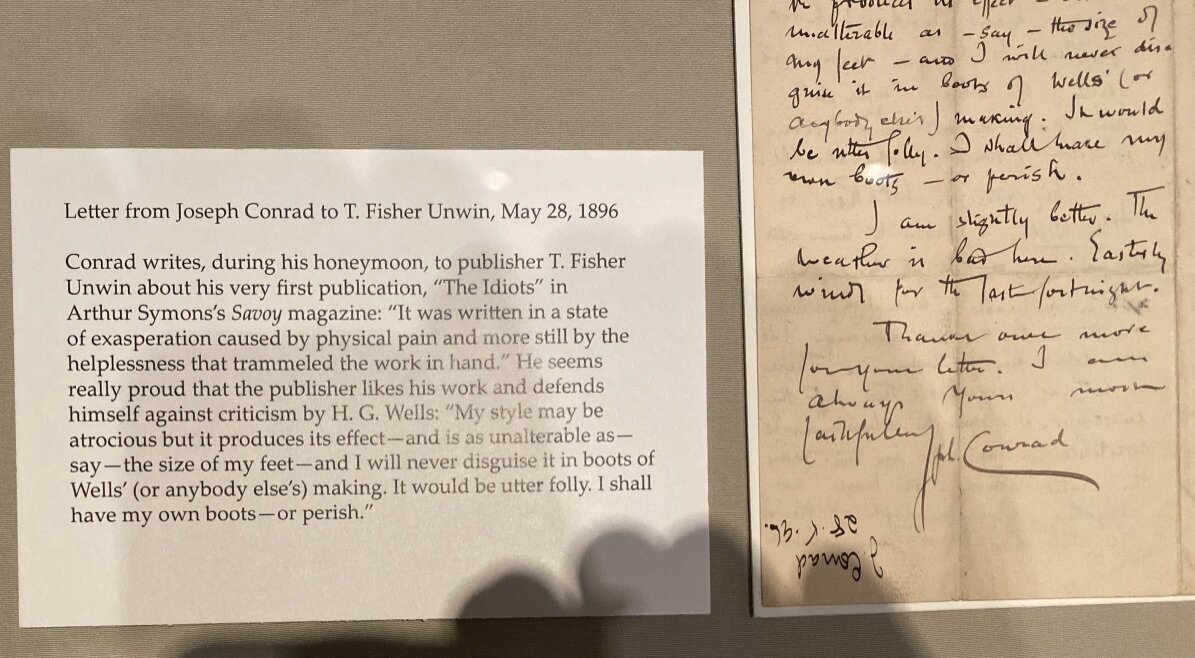 Letter from Joseph Conrad to T. Fisher Unwin, May 28, 1896
Conrad writes, during his honeymoon, to publisher T. Fisher
Unwin about his very first publication, “The Idiots” in
Arthur Symons’s Savoy magazine: “It was written in a state
of exasperation caused by physical pain and more still by the
helplessness that trammeled the work in hand.” He seems
really proud that the publisher likes his work and defends
himself against criticism by H. G. Wells: “My style may be
atrocious but it produces its effect—and is as unalterable as—
say—the size of my feet—and I will never disguise it in boots of
Wells’ (or anybody else’s) making. It would be utter folly. I shall
have my own boots—or perish.”
it produces its effect —
unalterable as – say – the size of
my feet – and I will never dis-
guise it in boots of Wells' (or
anybody else's) making. It would
be utter folly. I shall have my
own boots – or perish.
I am slightly better. The
weather is bad here. Easterly
winds for the last fortnight.
Thanks once more
for your letter. I am
always Yours most
faithfully Jph. Conrad
J Conrad
28.5.96.